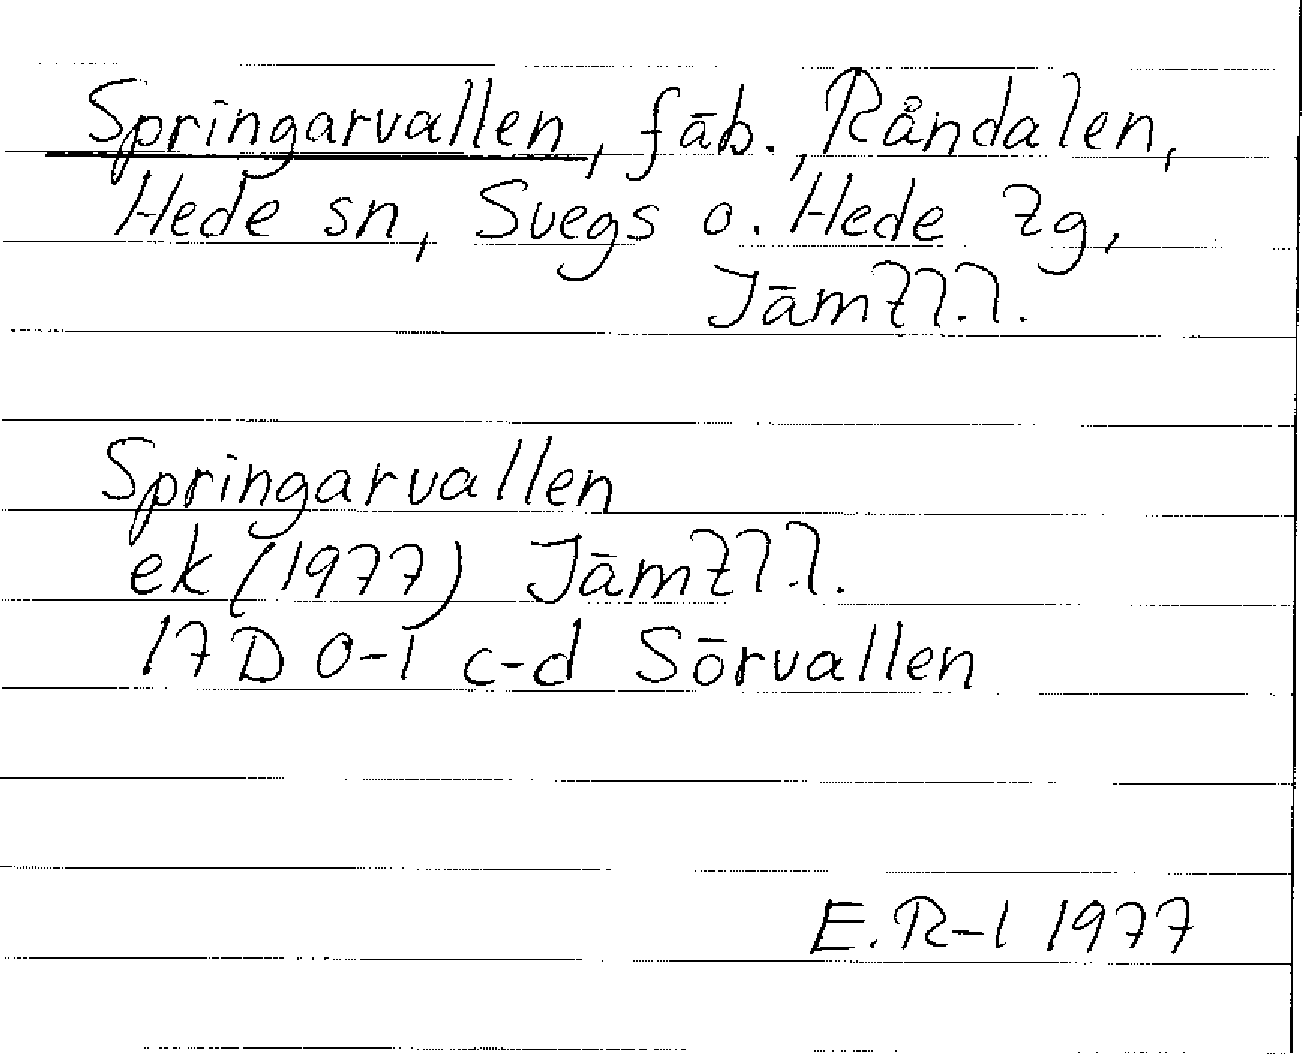 Springarvallen, fäb., Råndalen,
Hede sn, Svegs o. Hede tg,
Jämtl.l.
Springarvallen
ek (1977) Jämtl.l.
17D 0-1 c-d Sörvallen
E.R-l 1977